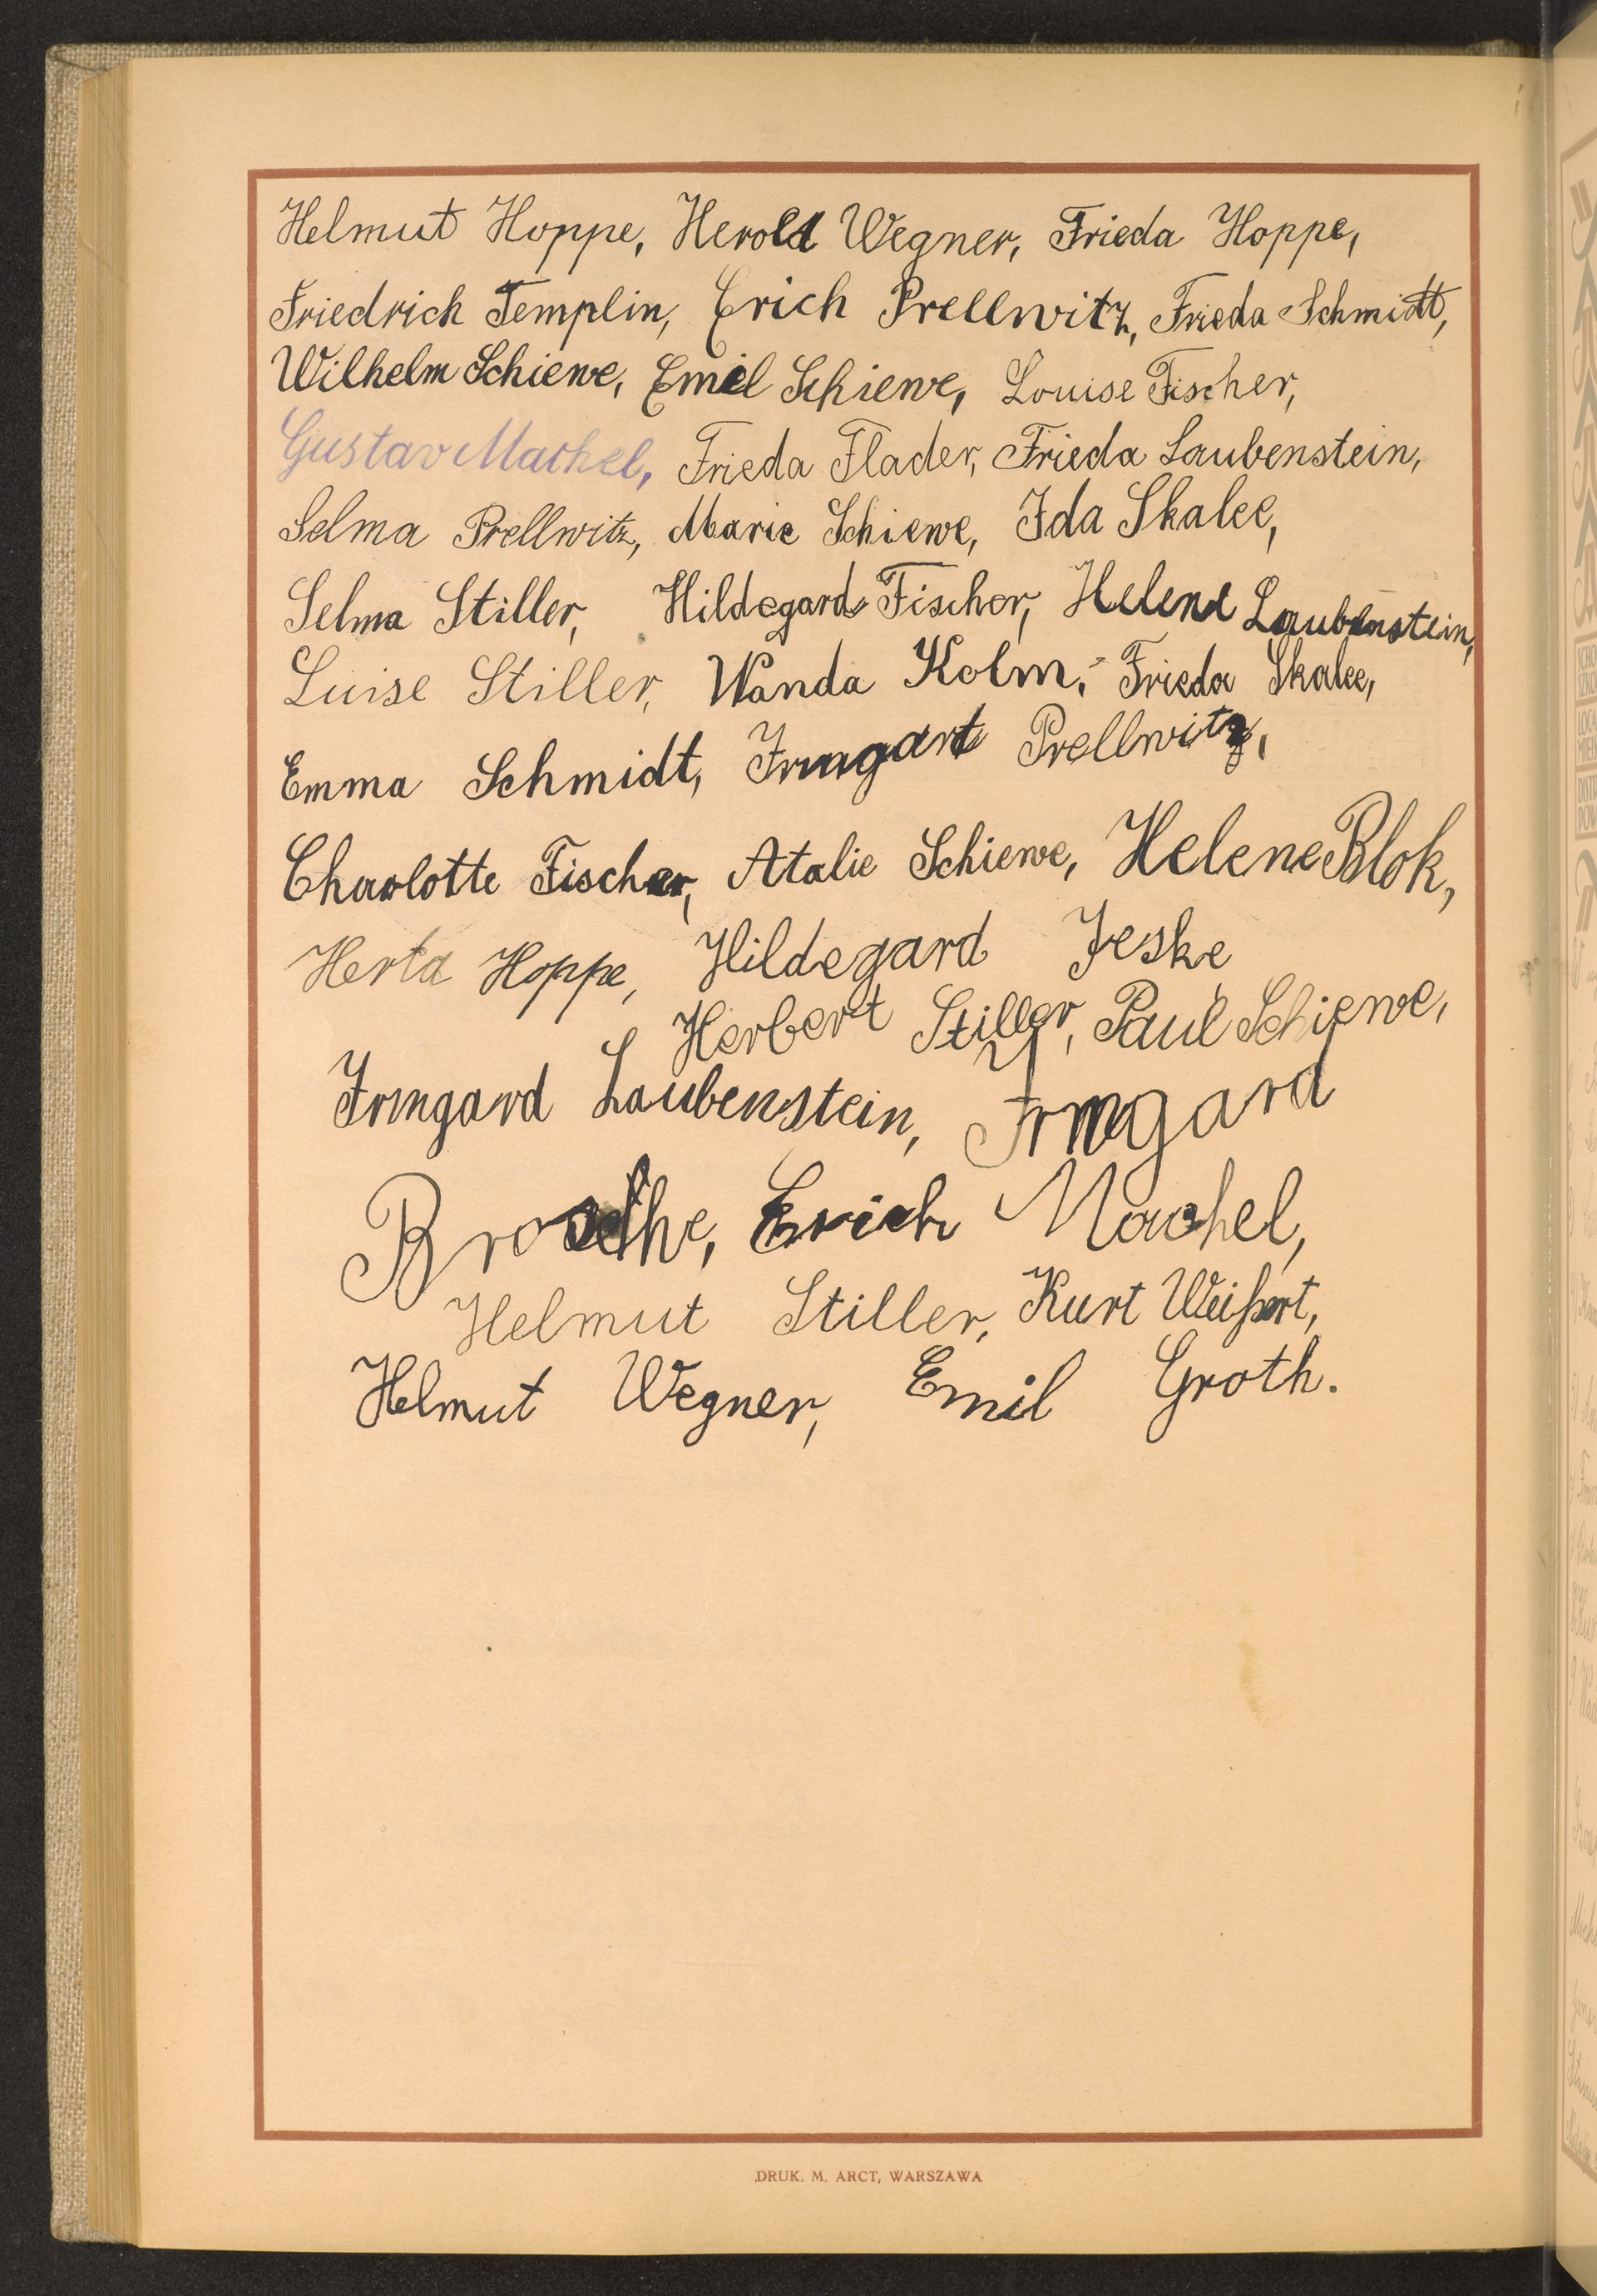 Helmut Hoppe, Herold Wegner, Frieda Hoppe,
Friedrich Templin, Erich Prellwitz, Frieda Schmidt,
Wilhelm Schiewe, Emil Schiewe, Louise Fischer,
Gustav Machel, Frieda Flader, Frieda Laubenstein,
Selma Prellwitz, Marie Schiewe, Ida Skalee,
Selma Stiller, Hildegard Fischer, Helene Laubenstein,
Luise Stiller, Wanda Kolm, Frieda Skalee,
Emma Schmidt, Irmgart Prellwitz,
Charlotte Fischer, Atalie Schiewe, Helene Blok,
Herta Hoppe, Hildegard Jeske,
Herbert Stiller, Paul Schiewe,
Irmgard Laubenstein, Irmgard
Erich Machel,
Helmut Stiller, Kurt Weißert,
Helmut Wegner, Emil Groth.
DRUK. M. ARCT, WARSZAWA